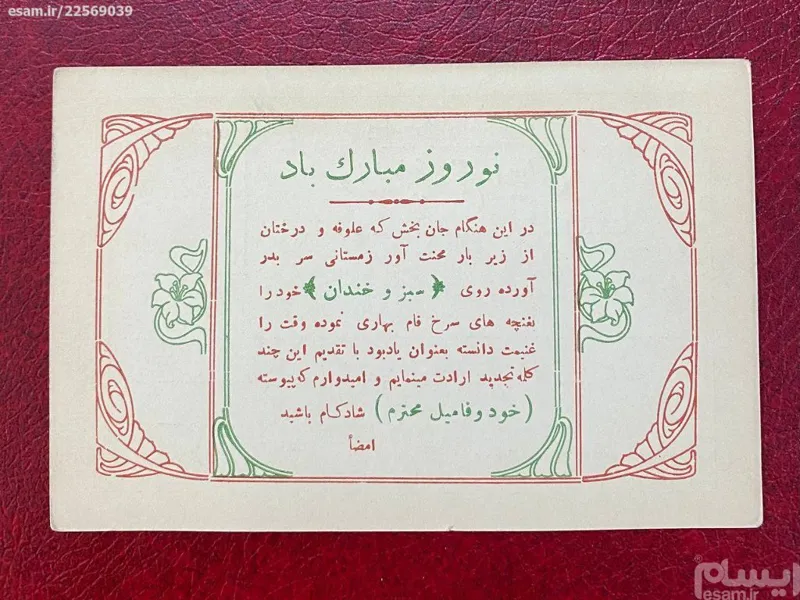 esam.ir/22569039
نوروز مبارك باد
در این هنگام جان بخش که علوفه و درختان
از زیر بار محنت آور زمستانی سر بدر
آورده روی ﴿سبز و خندان﴾ خود را
بغنچه های سرخ فام بهاری نموده وقت را
غنیمت دانسته بعنوان یادبود با تقدیم این چند
کلمه تجدید ارادت مینمایم و امیدوارم که پیوسته
(خود وفامیل محترم) شادکام باشید
امضأ
ایسام
esam.ir